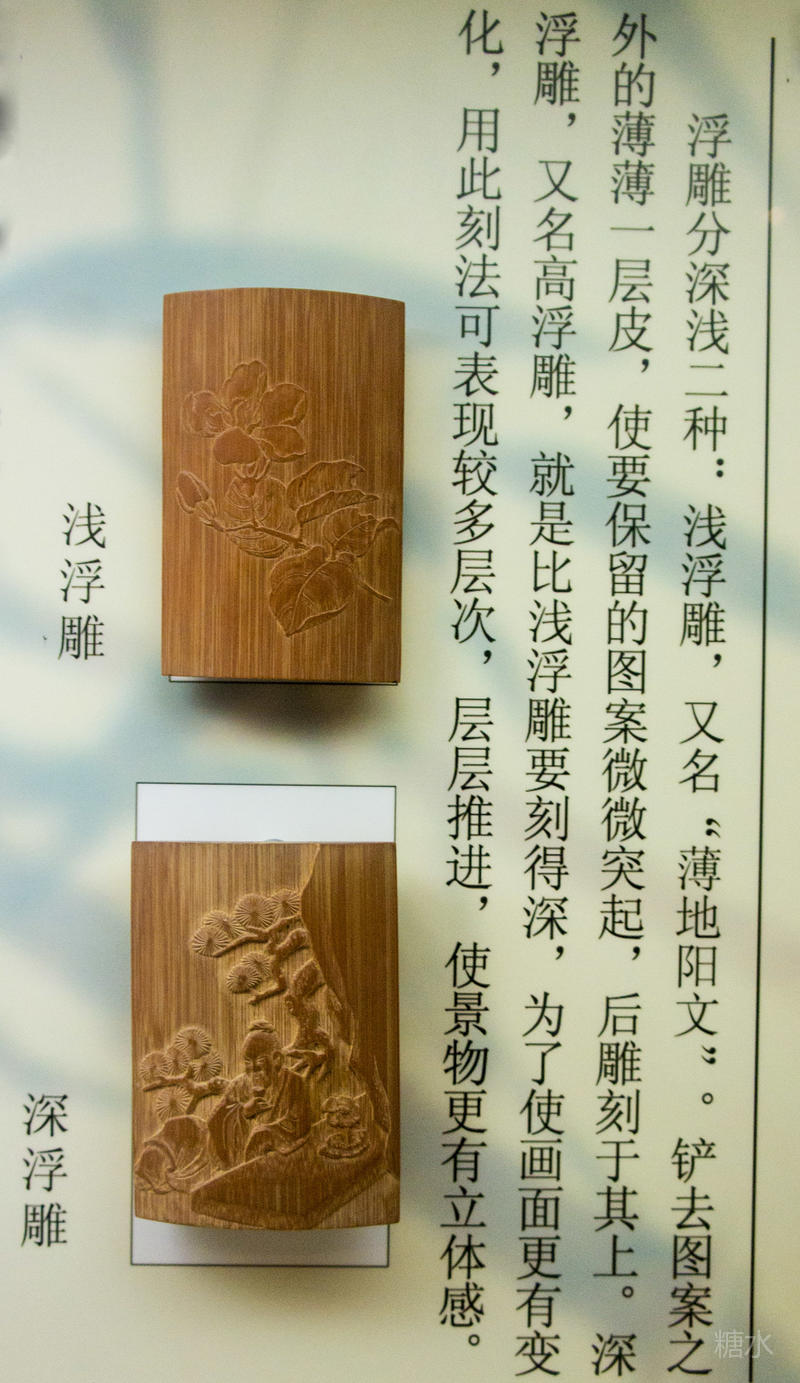 浮雕分深浅二种：浅浮雕，又名“薄地阳文”。铲去图案之
外的薄薄一层皮，使要保留的图案微微突起，后雕刻于其上。深
浮雕，又名高浮雕，就是比浅浮雕要刻得深，为了使画面更有变
化，用此刻法可表现较多层次，层层推进，使景物更有立体感。
浅浮雕
深浮雕
糖水